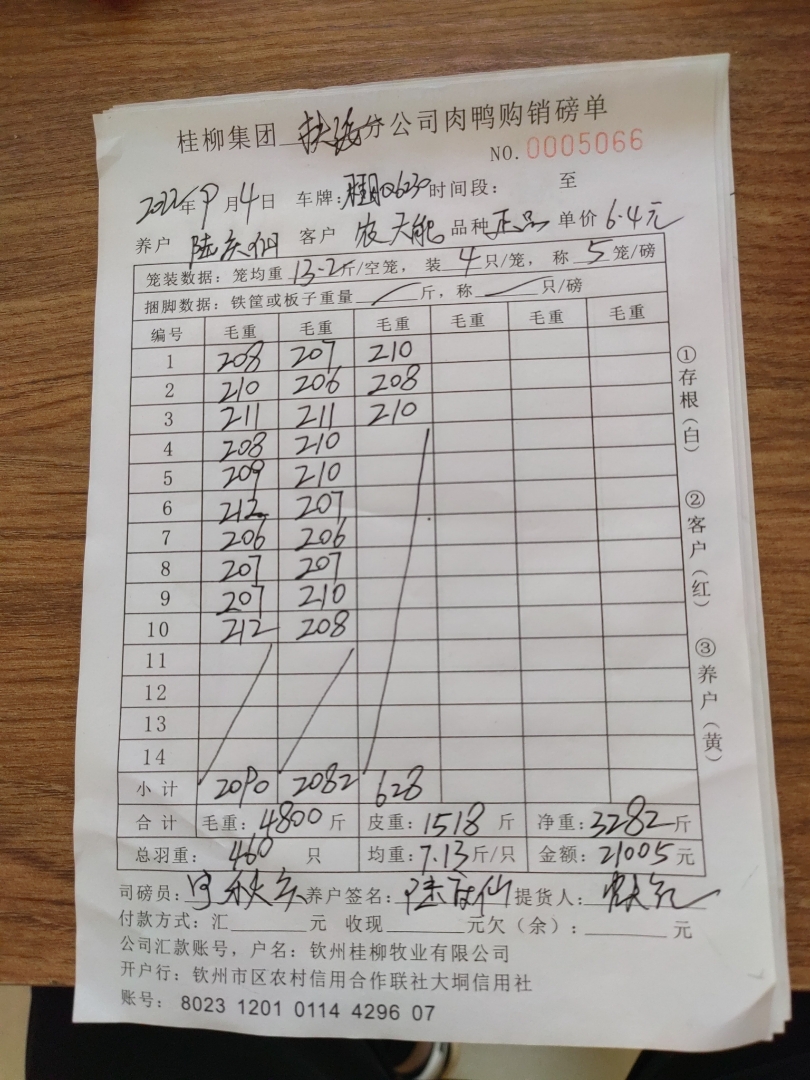 桂柳集团 分公司肉鸭购销磅单
NO. 0005066
2022年9月4日 车牌: 时间段: 至
养户 陆庆仙 客户 农天能 品种 正品 单价 6.4元
笼装数据:笼均重 13.2斤/空笼, 装 4 只/笼, 称 5 笼/磅
捆脚数据:铁筐或板子重量 斤,称 只/磅
编号 毛重 毛重 毛重 毛重 毛重 毛重
1 208 207 210
2 210 206 208
3 211 211 210
4 208 210
5 209 210
6 212 207
7 206 206
8 207 207
9 207 210
10 212 208
11
12
13
14
小计 2090 2082 628
合计 毛重: 4800 斤 皮重: 1518 斤 净重: 3282斤
总羽重: 460 只 均重: 7.13斤/只 金额: 21005元
司磅员: 养户签名: 陆庆仙 提货人:
付款方式:汇 元 收现 元欠(余): 元
公司汇款账号,户名:钦州桂柳牧业有限公司
开户行:钦州市区农村信用合作联社大垌信用社
账号: 8023 1201 0114 4296 07
①存根(白) ②客户(红) ③养户(黄)